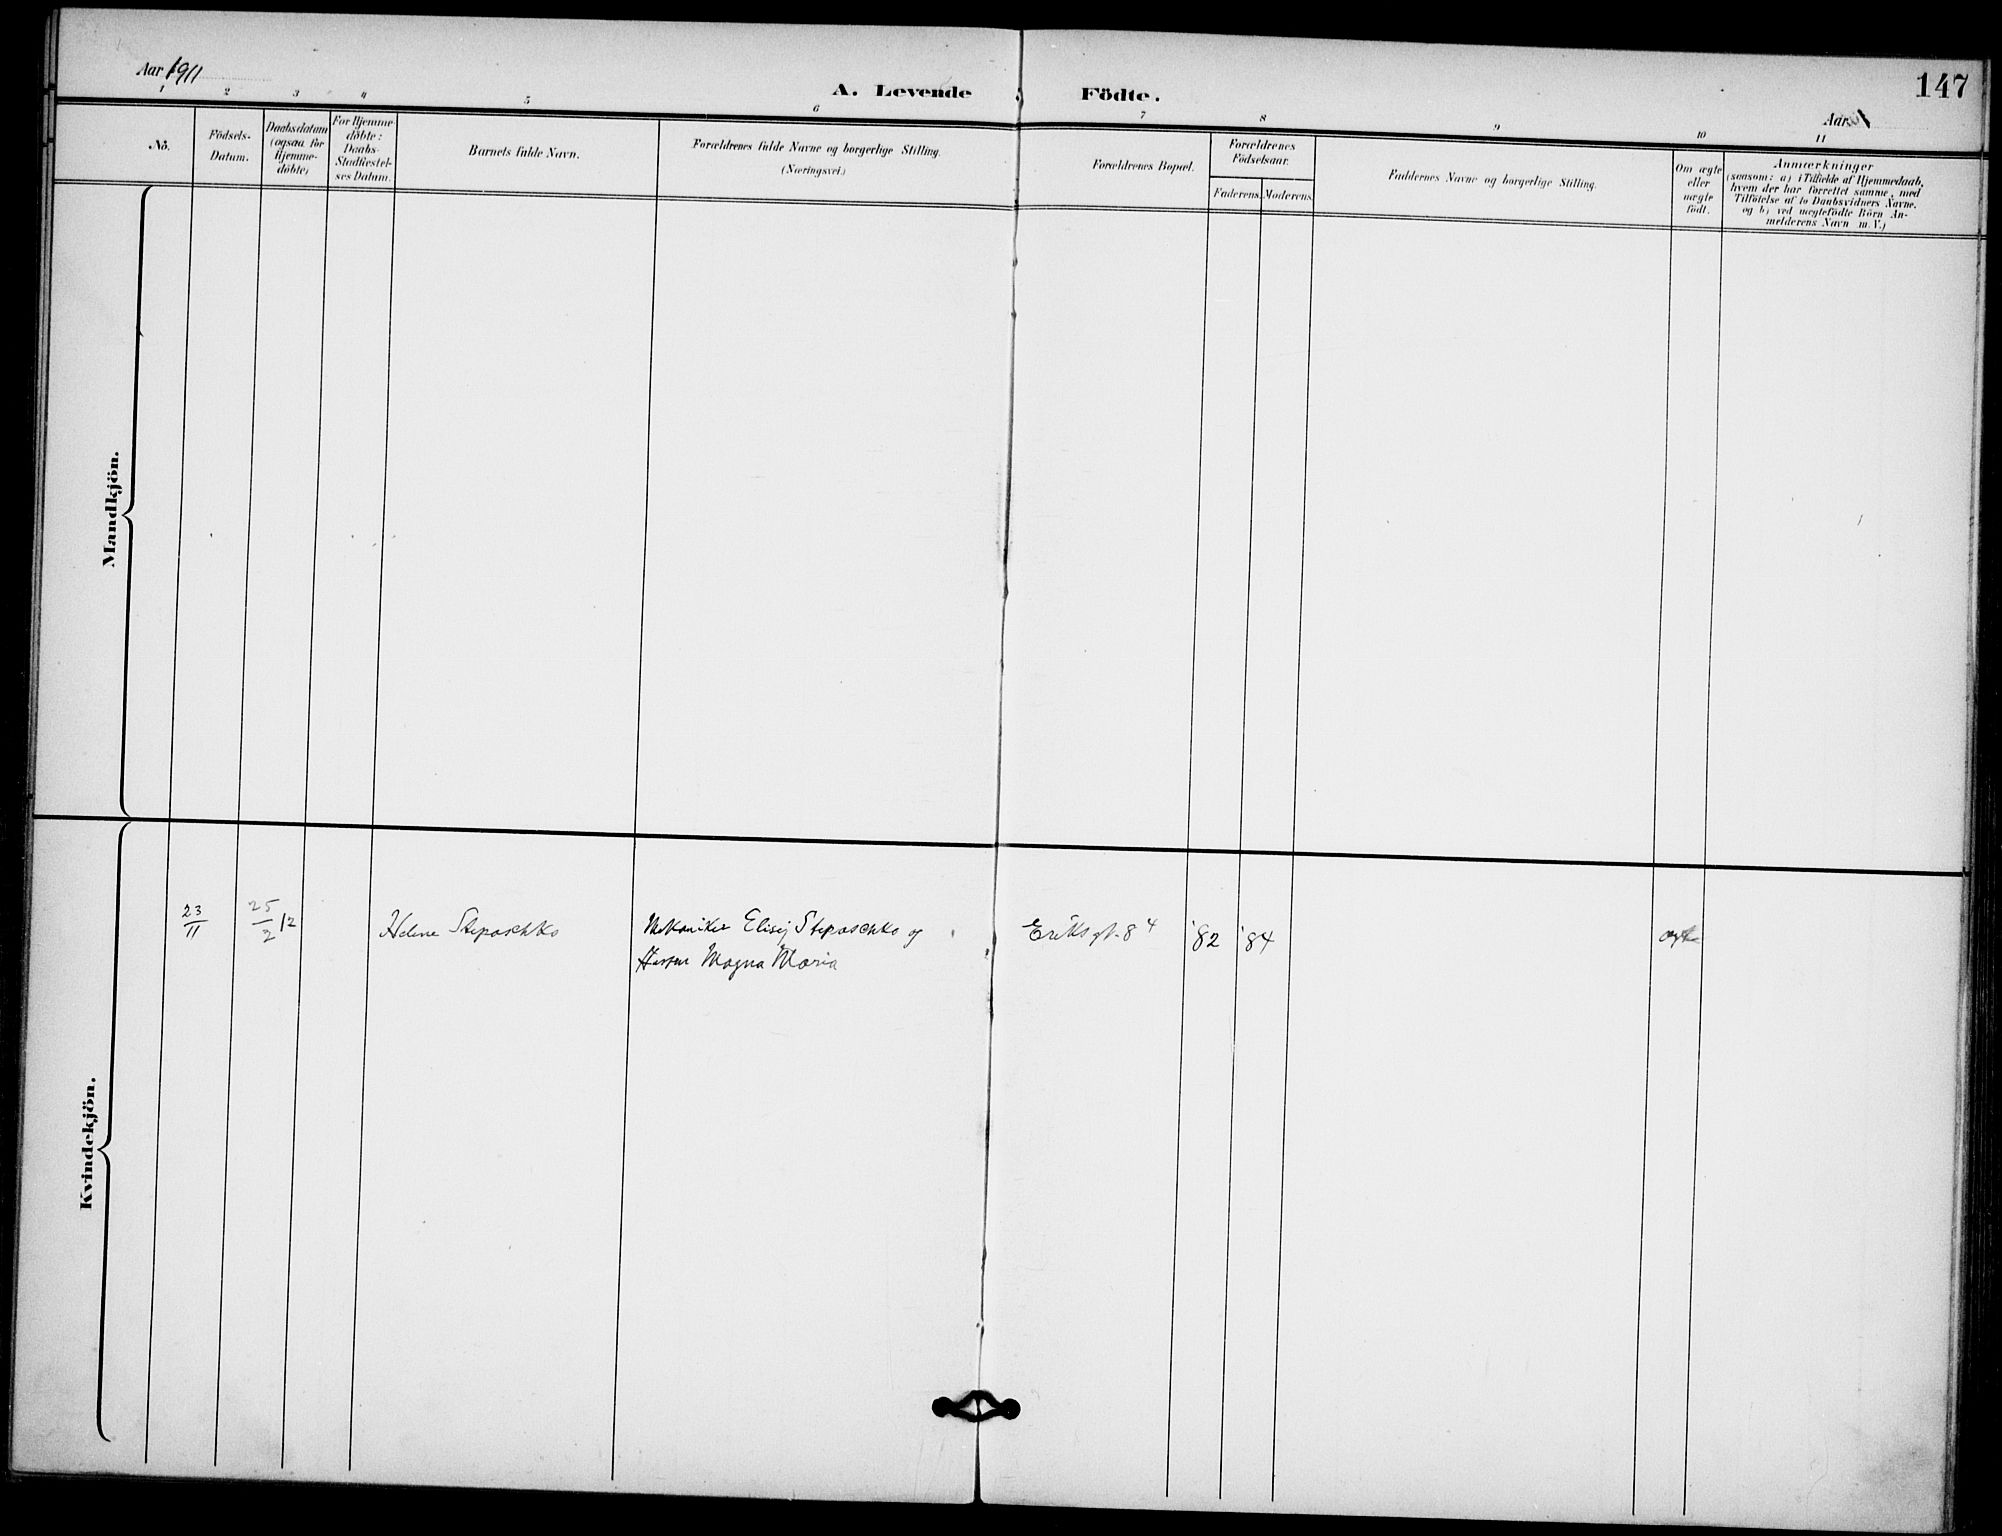 Aar 1911
A. Levende Födte.
147
Aar
1 2 3 4 5 6 7 8 9 10 11
No.
Födsels-
Datum.
Daabsdatum
(ogsaa for
Hjemme-
döbte)
For Hjemme-
döbte:
Daabs-
Stadfæstel-
ses Datum.
Barnets fulde Navn.
Forældrenes fulde Navne og borgerlige Stilling.
(Næringsvei.)
Forældrenes Bopæl.
Forældrenes
Födselsaar.
Faderens. Moderens.
Faddernes Navne og borgerlige Stilling.
Om ægte
eller
uægte
födt.
Anmærkninger
(saasom: a) i Tilfælde af Hjemmedaab,
hvem der har forrettet samme, med
Tilföielse af to Daabsvidners Navne,
og b) ved uægtefödte Börn An-
melderens Navn m.V.)
Mandkjön.
Kvindekjön.
23/11 25/2 12 Helene Stepaschko Mekaniker Elisej Stepaschko og Eriksgt. 84 '82 '84 ægte
Hustru Magna Maria